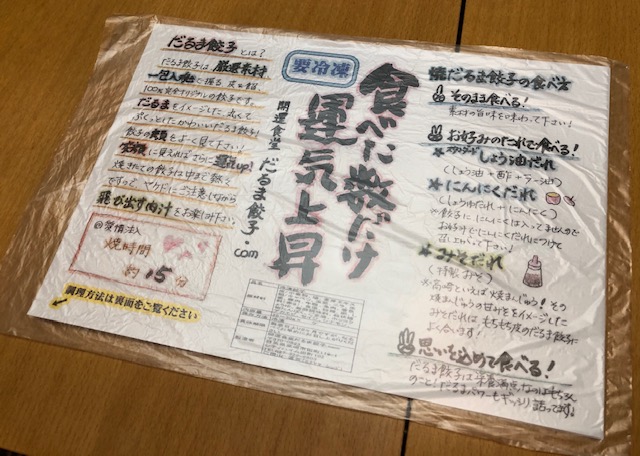 だるま餃子とは?
だるま餃子は厳選素材
一包入魂で握る 皮と餡
100%完全オリジナルの餃子です。
だるまをイメージした丸くて
ぷくっとしたかわいいだるま餃子!
餃子の表情をよーく見て下さい!
笑顔に見えればさらに運気up!
焼きたての餃子は中まで熱く
ですって、ヤケドにご注意しながら
飛び出す肉汁をお楽しみ下さい。
焼時間
約15分
調理方法は裏面をご覧ください
要冷凍
食べた数だけ
運気上昇
開運食堂 だるま餃子.com
焼だるま餃子の食べ方
そのまま食べる!
素材の旨味を味わって下さい!
お好みのたれで食べる!
★スタンダードしょう油だれ
(しょう油+酢+ラー油)
★にんにくだれ
(しょうゆだれ+にんにく)
※餃子ににんにくは入ってませんので
お好みでにんにくだれにつけて
召し上がって下さい!
★みそだれ
(特製みそ)
※高崎といえば焼まんじゅう!その
焼まんじゅうの甘みそをイメージした
みそだれは もちもち皮のだるま餃子に
よく合います!
思いを込めて食べる!
だるま餃子は栄養満点なのはもちろん
のこと!だるまパワーもギッシリ詰ってます!